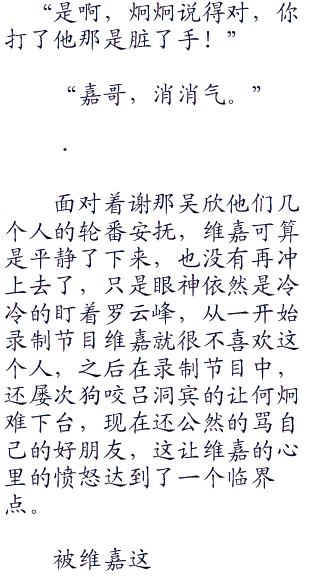 “是啊，炯炯说得对，你
打了他那是脏了手！”
“嘉哥，消消气。”
.
面对着谢那吴欣他们几
个人的轮番安抚，维嘉可算
是平静了下来，也没有再冲
上去了，只是眼神依然是冷
冷的盯着罗云峰，从一开始
录制节目维嘉就很不喜欢这
个人，之后在录制节目中，
还屡次狗咬吕洞宾的让何炯
难下台，现在还公然的骂自
己的好朋友，这让维嘉的心
里的愤怒达到了一个临界
点。
被维嘉这